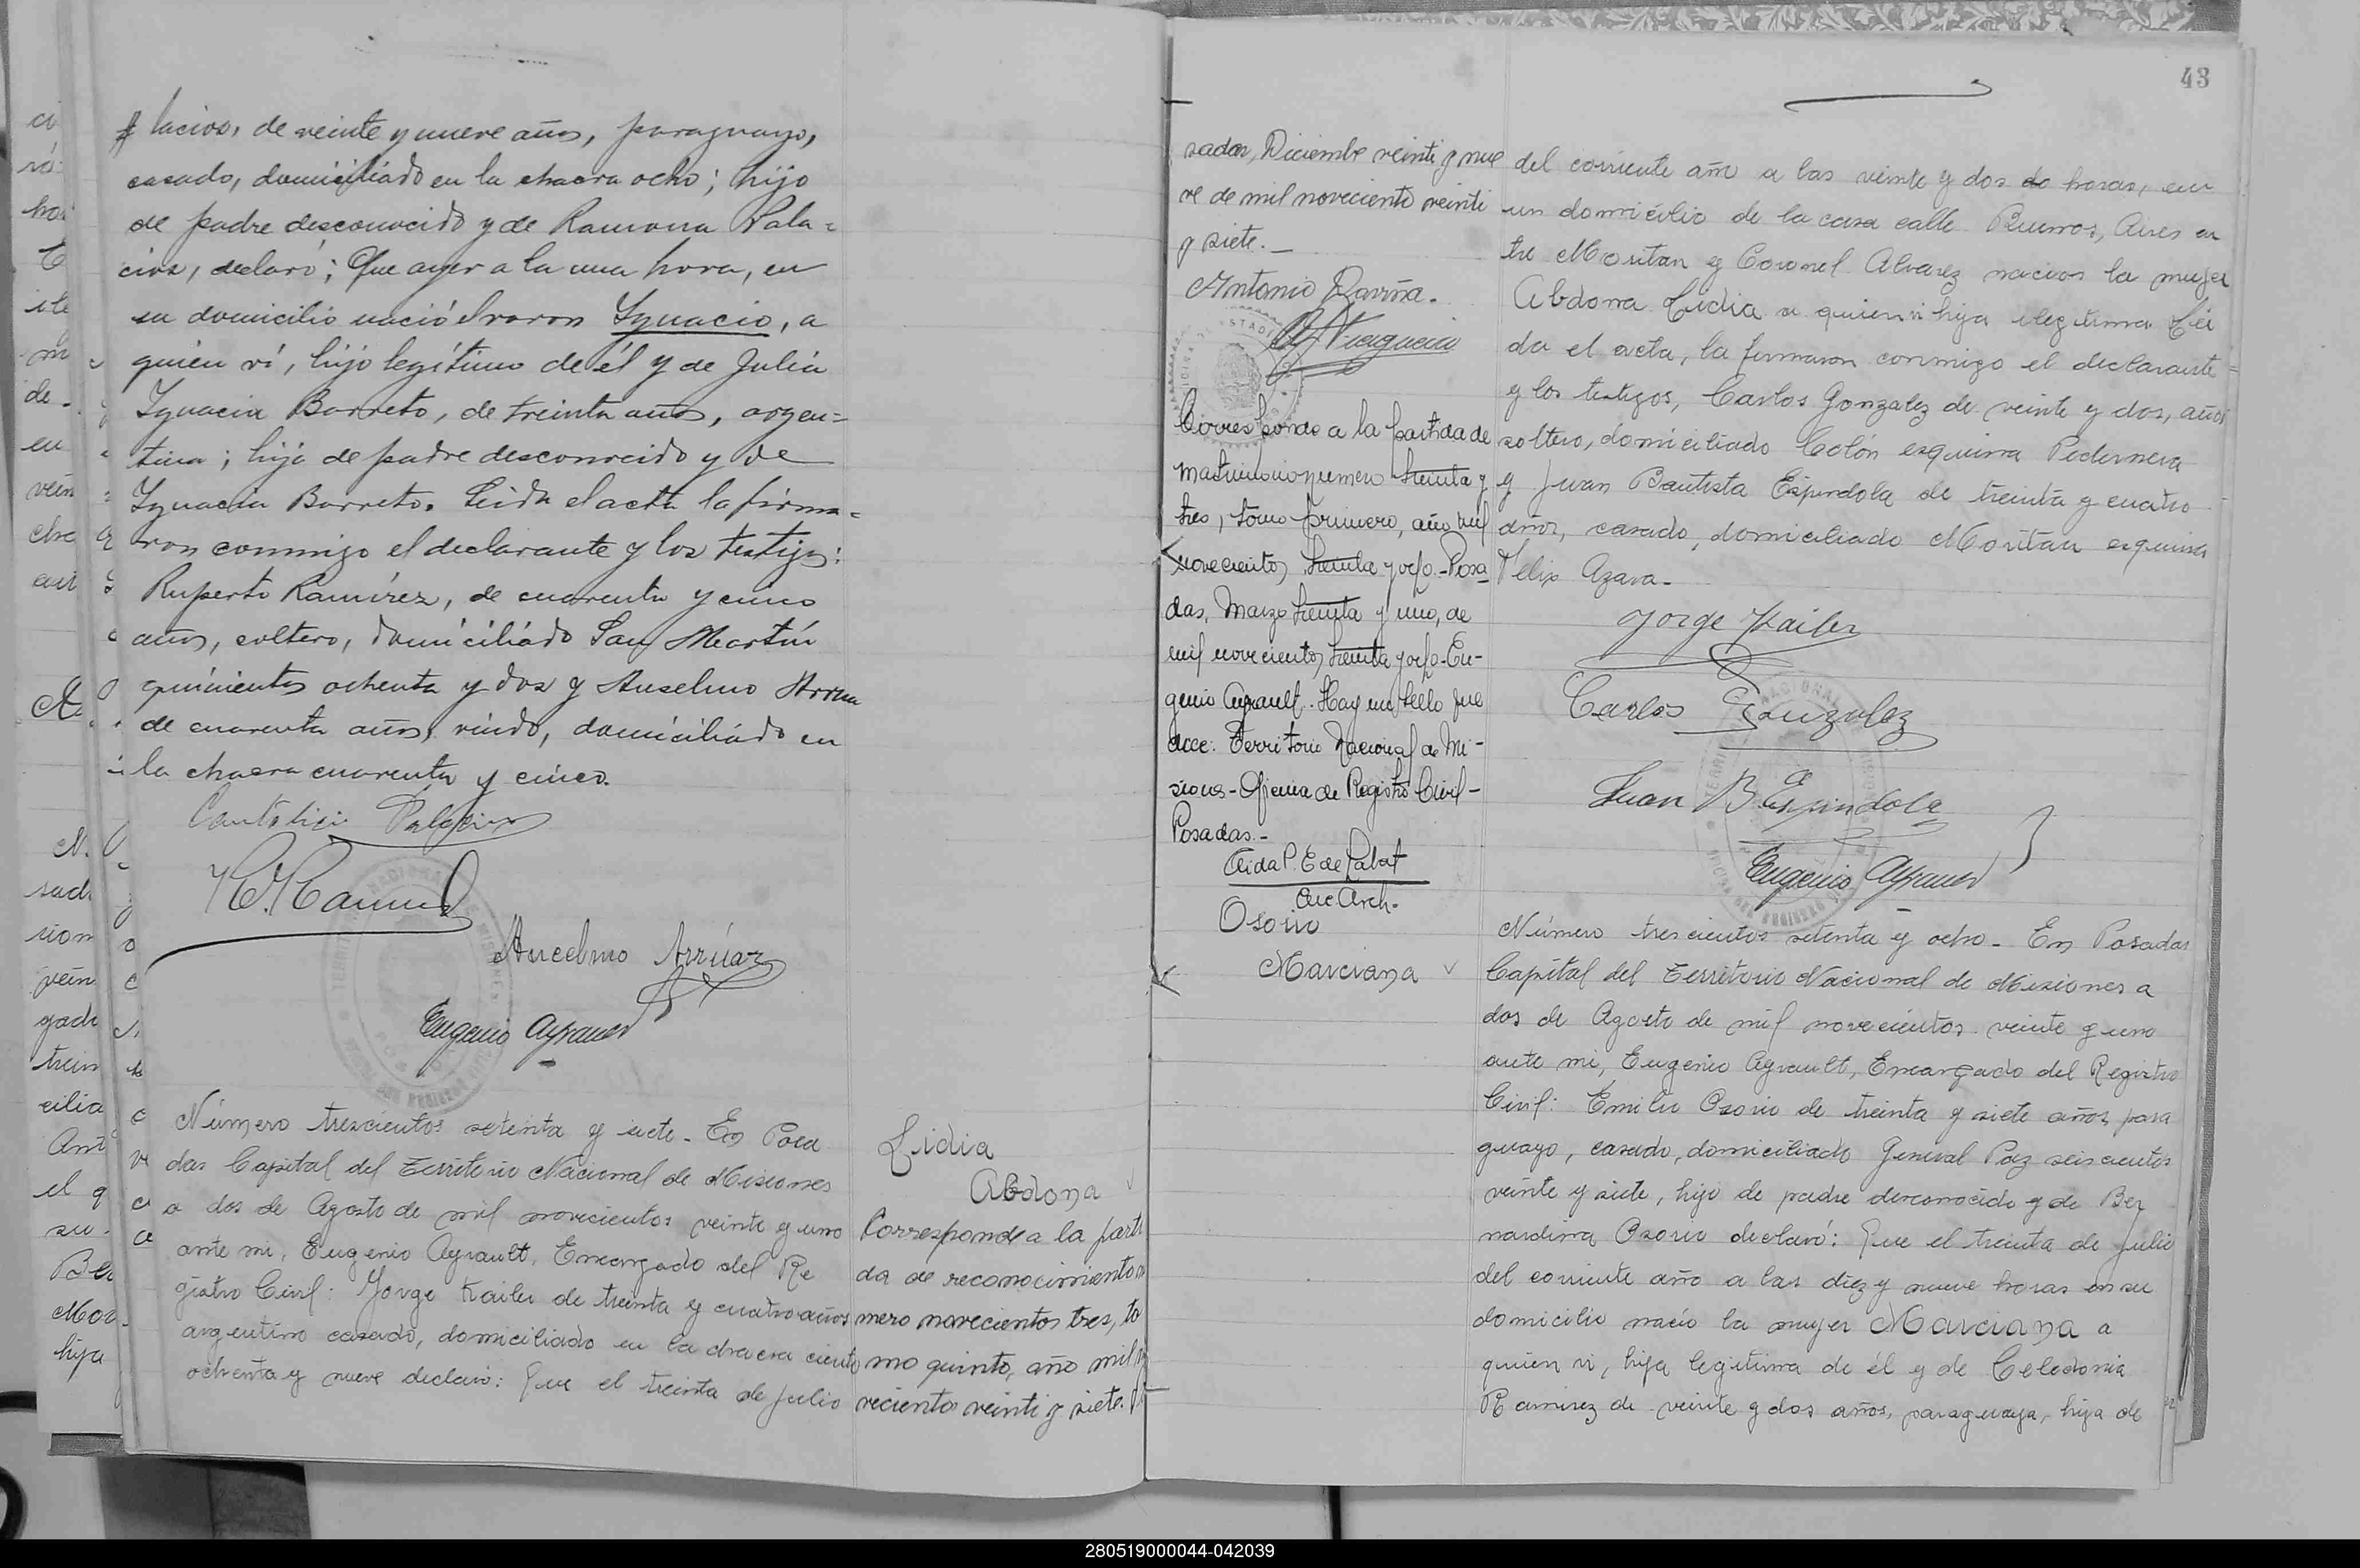 lacios, de veinte y nueve años, paraguayo,
casado, domiciliado en la chacra ocho; hijo
de padre desconocido y de Ramona Pala=
cios, declaró: Que ayer a la una hora, en
su domicilio nació el varon Ygnacio, a
quien ví, hijo legítimo de él y de Julia
Ygnacia Barreto, de treinta años, argen=
tina; hija de padre desconocido y de
Ygnacia Barreto. Leida el acta la firma=
ron conmigo el declarante y los testigos:
Ruperto Ramírez, de cuarenta y cinco
años, soltero, domiciliado San Martín
quinientos ochenta y dos y Anselmo Arrua
de cuarenta años, viudo, domiciliado en
la chacra cuarenta y cinco.
Anselmo Arrúaz
Eugenio Ayrault
Número trescientos setenta y siete. En Posa
das Capital del Territorio Nacional de Misiones
a dos de Agosto de mil novecientos veinte y uno
ante mi, Eugenio Ayrault, Encargado del Re
gistro Civil: Jorge Kailer de treinta y cuatro años
argentino casado, domiciliado en la chacra ciento
ochenta y nueve declaró: Que el treinta de Julio
Lidia
Abdona
Corresponde a la parti
da de reconocimiento
mero novecientos tres, to
mo quinto, año mil
vecientos veinti y siete.
43
sadas, Diciembre veinti y nue
ve de mil novecientos veinti
y siete.
Antonio
Corresponde a la partida de
matrimonio numero treinta y
tres, tomo primero, año mil
novecientos treinta y ocho.-Posa
das, Marzo treinta y uno, de
mil novecientos treinta y ocho-Eu-
genio Ayrault. Hay un sello que
dice: Territorio Nacional de Mi-
siones-Oficina de Registro Civil-
Posadas.-
Aida P. E de Labat
Arch.
Osorio
Marciana
del corriente año a las veinte y dos horas, en
un domicilio de la casa calle Buenos Aires en
tre Moritan y Coronel Alvarez nacio la mujer
Abdona Lidia a quien vi hija ilegitima. Lei
da el acta, la firmaron conmigo el declarante
y los testigos, Carlos Gonzalez de veinte y dos, años
soltero, domiciliado Colón esquina Pedernera
y Juan Bautista Espindola de treinta y cuatro
años, casado, domiciliado Moritan esquina
Felix Azara-
Jorge Kailer
Carlos Gonzalez
Juan B Espindola
Eugenio Ayrault
Número trescientos setenta y ocho- En Posadas
Capital del Territorio Nacional de Misiones a
dos de Agosto de mil novecientos veinte y uno
ante mi, Eugenio Ayrault, Encargado del Registro
Civil: Emilio Osorio de treinta y siete años para
guayo, casado, domiciliado General Paz seiscientos
veinte y siete, hijo de padre desconocido y de Ber
nardina Osorio declaró: Que el treinta de Julio
del corriente año a las diez y nueve horas en su
domicilio nacio la mujer Marciana a
quien vi, hija legitima de él y de Celedonia
Ramirez de veinte y dos años, paraguaya, hija de
280519000044-042039